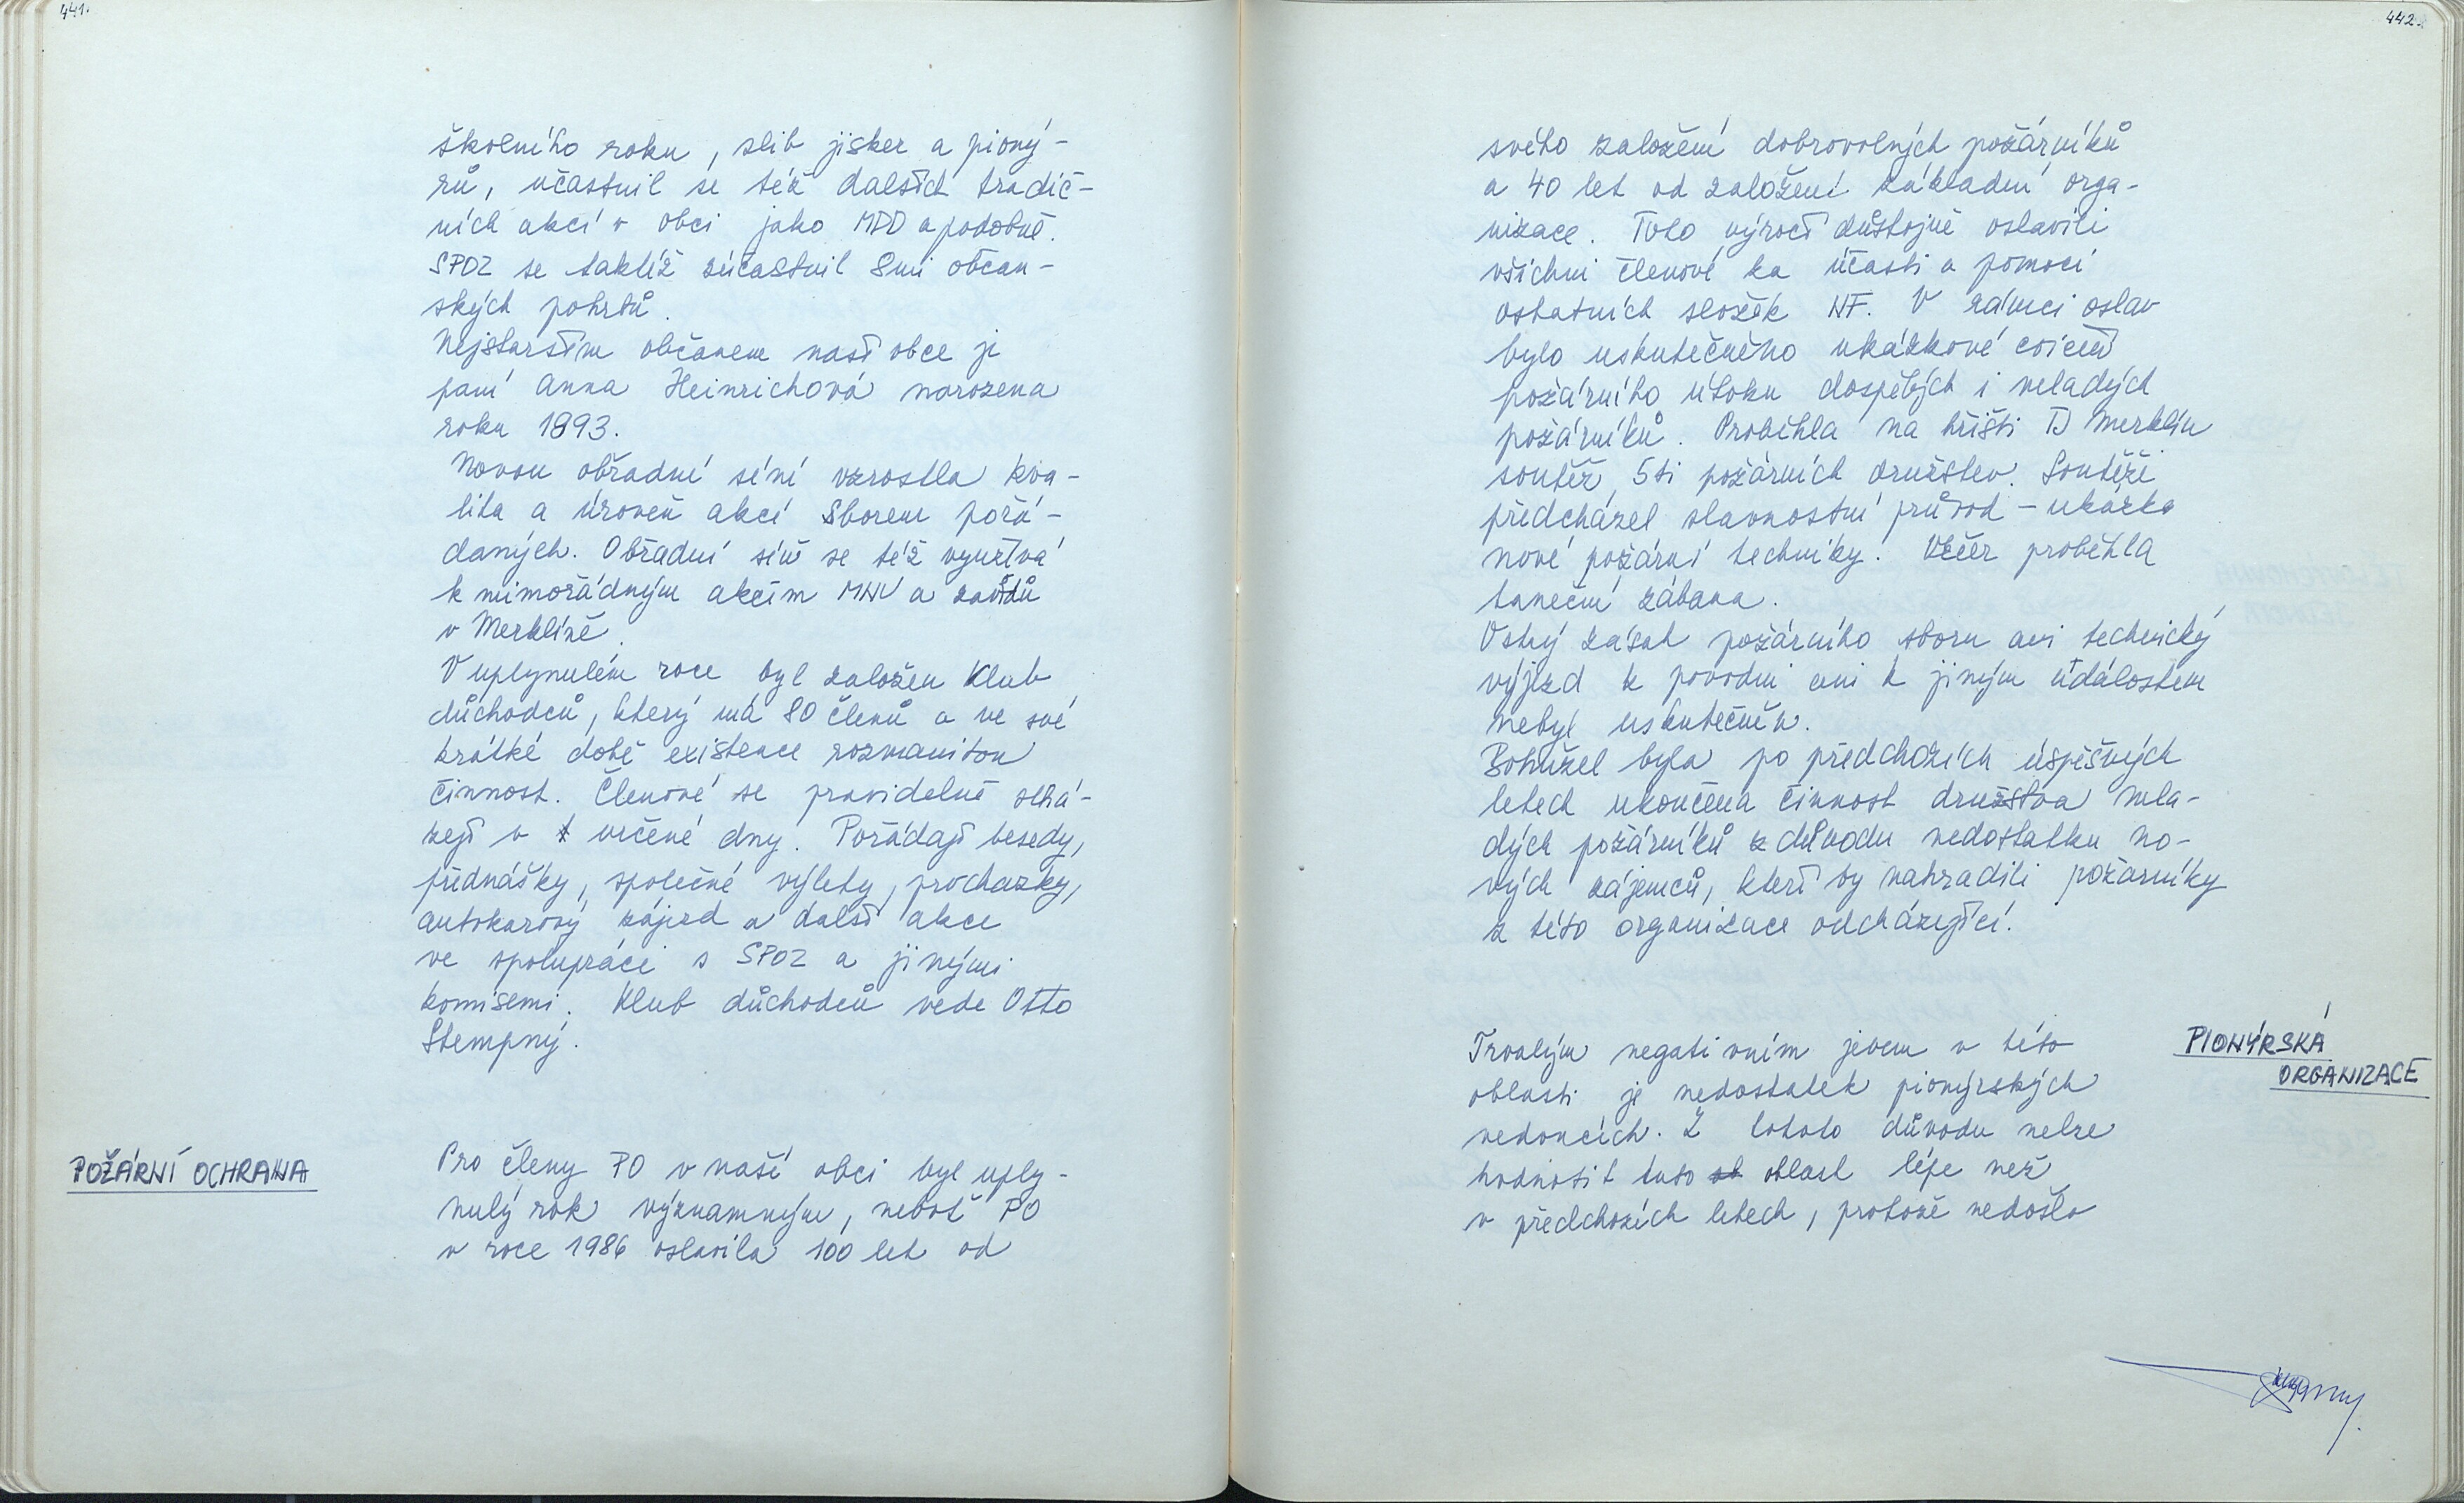 441.
školního roku, slib jisker a pioný-
rů, účastnil se též dalších tradič-
ních akcí v obci jako MDD a podobně.
SPOZ se taktéž zúčastnil 8mi občan-
ských pohřbů.
Nejstarším občanem naší obce je
paní Anna Heinrichová narozena
roku 1893.
Novou obřadní síní vzrostla kva-
lita a úroveň akcí Sborem pořá-
daných. Obřadní síň se též využívá
k mimořádným akcím MNV a závodů
v Merklíně.
V uplynulém roce byl založen Klub
důchodců, který má 80 členů a ve své
krátké době existence rozmanitou
činnost. Členové se pravidelně schá-
zejí v určené dny. Pořádají besedy,
přednášky, společné výlety, procházky,
autokarový zájezd a další akce
ve spolupráci s SPOZ a jinými
komisemi. Klub důchodců vede Otto
Stempný.
POŽÁRNÍ OCHRANA
Pro členy PO v naší obci byl uply-
nulý rok významným, neboť PO
v roce 1986 oslavila 100 let od
442
svého založení dobrovolných požárníků
a 40 let od založení základní orga-
nizace. Toto výročí důstojně oslavili
všichni členové za účasti a pomoci
ostatních složek NF. V rámci oslav
bylo uskutečněno ukázkové cvičení
požárního útoku dospělých i mladých
požárníků. Proběhla na hřišti TJ Merklín
soutěž 5ti požárních družstev. Soutěži
předcházel slavnostní průvod - ukázka
nové požární techniky. Večer proběhla
taneční zábava.
Ostrý zásah požárního sboru ani technický
výjezd k povodni ani k jiným událostem
nebyl uskutečněn.
Bohužel byla po předchozích úspěšných
letech ukončena činnost družstva mla-
dých požárníků z důvodu nedostatku no-
vých zájemců, kteří by nahradili požárníky
z této organizace odcházející.
PIONÝRSKÁ
ORGANIZACE
Trvalým negativním jevem v této
oblasti je nedostatek pionýrských
vedoucích. Z tohoto důvodu nelze
hodnotit tuto oblast lépe než
v předchozích letech, protože nedošlo